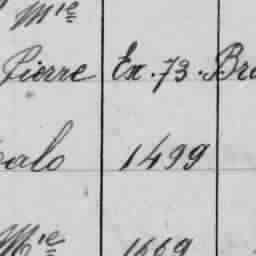 Mie
Pierre Ex. 73. Bre
alo 1499
Mie 1669